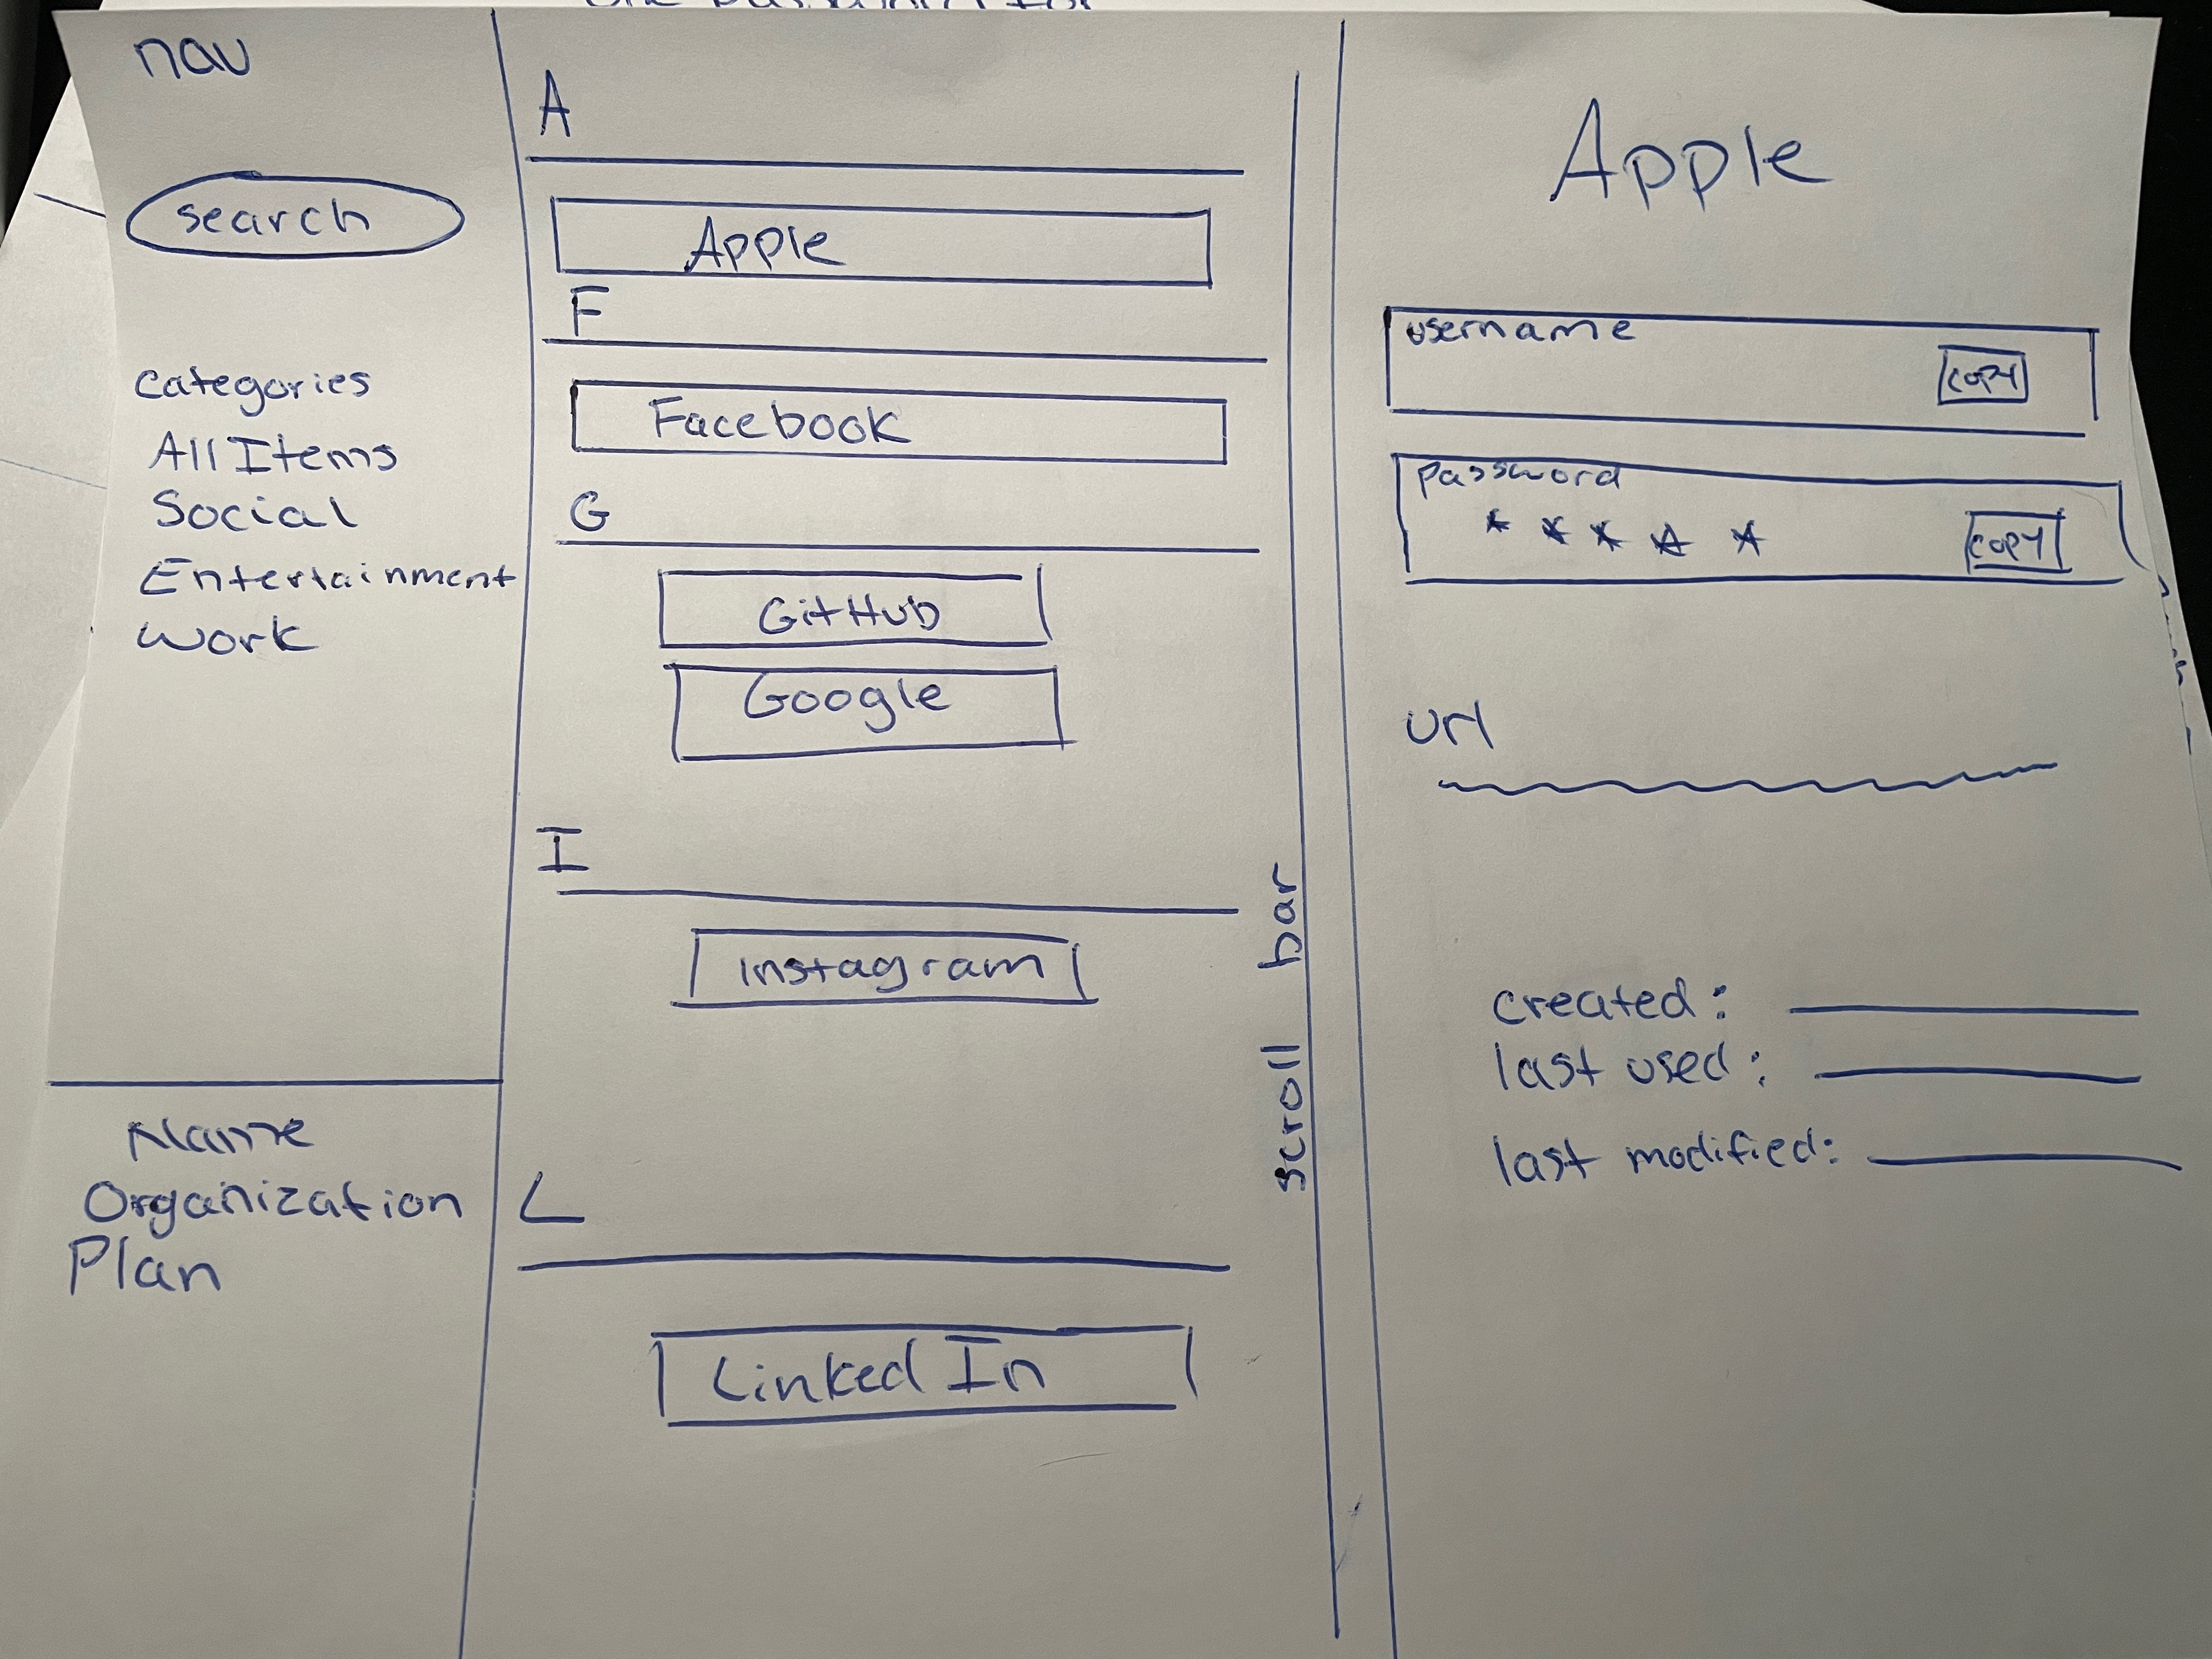 nav
search
categories
All Items
Social
Entertainment
Work
Name
Organization
Plan
A
Apple
F
Facebook
G
GitHub
Google
I
instagram
L
Linked In
scroll bar
Apple
username
copy
password
* * * * *
copy
url
created:
last used:
last modified: